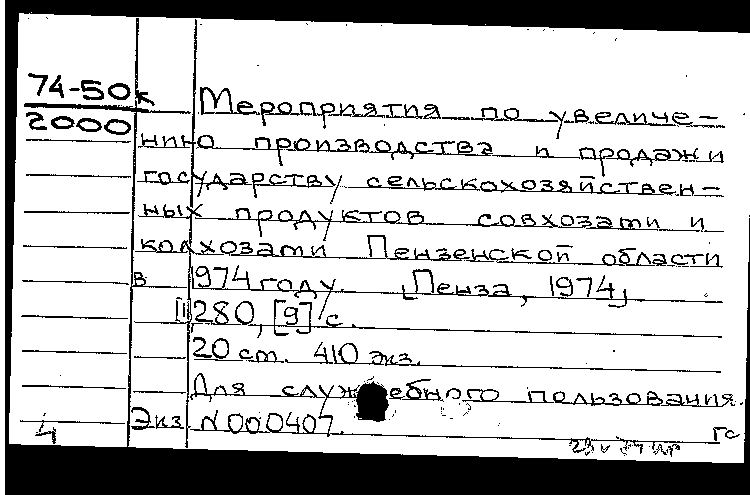 74-50к
2000
Мероприятия по увеличе-
нию производства и продажи
государству сельскохозяйствен-
ных продуктов совхозами и
колхозами Пензенской области
в 1974 году. [Пенза, 1974]
280, [9] с.
20 см. 410 экз.
Для служебного пользования.
Экз. N000407.
гс
4